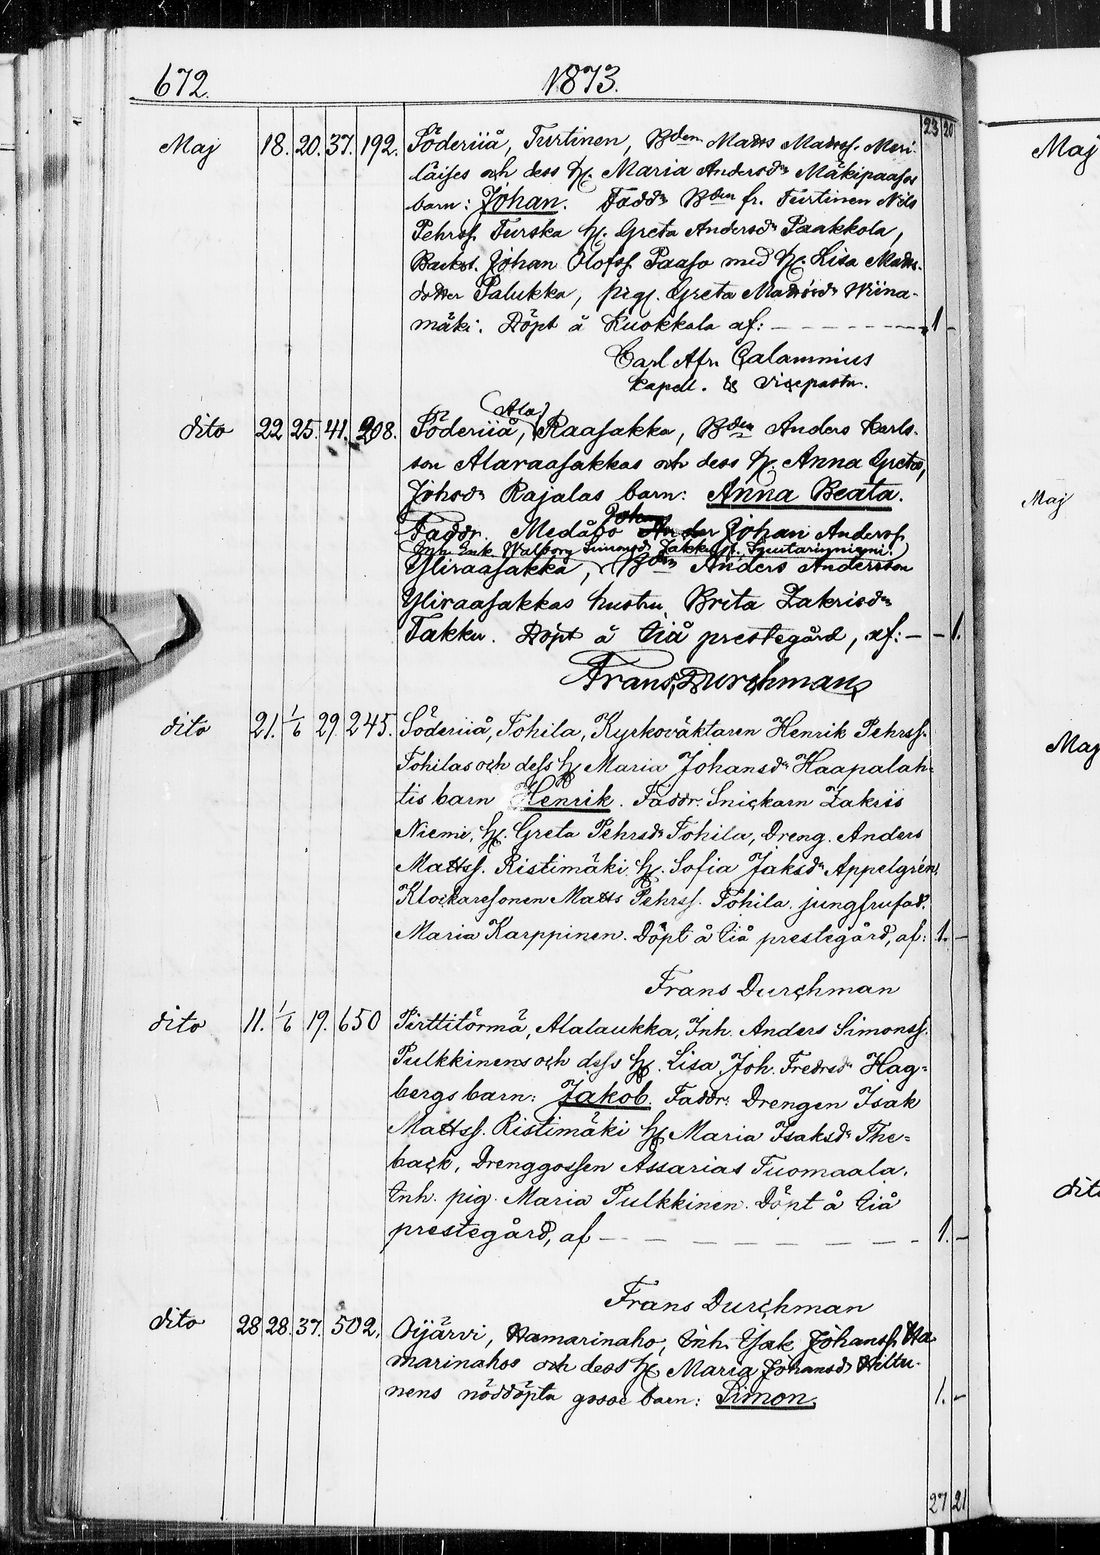 672. 1873.
23 20
Maj 18. 20. 37. 192. Söderiiå, Turtinen, Bden Matts Mattss. Meri-
läises och dess H. Maria Andersdr Mäkipaasos
barn: Johan. Faddr Bden fr. Turtinen Nils
Pehrss. Turska H. Greta Andersdr Paakkola,
Backst. Johan Olofss. Paaso med H. Lisa Matts-
dotter Palukka, pig. Greta Mattsdr Wiina-
mäki. Döpt å Kuokkala af: 1 -
Carl Afr. Calamnius
kapell. & Vicepastr.
(Ala)
dito 22 25. 41. 208. Söderiiå, Raasakka, Bden Anders Karls-
son Alaraasakkas och dess H. Anna Greta,
Johsdr Rajalas barn: Anna Beata.
Faddr. Medåbo Johan Anderss.
Walborg Simonsdr Jakku
Yliraasakka, Bden Anders Andersson
Yliraasakkas hustru Brita Zakrisdr
Takku. Döpt å Iiå prestegård, af: - 1.
Frans Durchman
dito 21. 1/6 29. 245. Söderiiå, Tohila, Kyrkoväktaren Henrik Pehrss.
Tohilas och dess H. Maria Johansdr Haapalah-
tis barn Henrik. Faddr: Snickarn Zakris
Niemi, H. Greta Pehrsdr Tohila, Dreng. Anders
Mattss. Ristimäki H. Sofia Jaksdr Appelgrén,
Klockaresonen Matts Pehrss. Tohila. jungfrufad.
Maria Karppinen. Döpt å Iiå prestegård, af: 1. -
Frans Durchman
dito 11. 1/6 19. 650 Pirttitörmä, Alalaukka, Inh. Anders Simonss.
Pulkkinens och dess H. Lisa Joh. Fredrsdr Hag-
bergs barn: Jakob. Faddr: Drengen Isak
Mattss. Ristimäki H. Maria Isaksdr The-
back, Drenggossen Assarias Tuomaala.
Inh. pig. Maria Pulkkinen. Döpt å Iiå
prestegård, af 1. -
Frans Durchman
dito 28 28. 37. 502. Oijärvi, Hamarinaho, Inh. Isak Johanss. Ha-
marinahos och dess H. Maria Johansdr Hiltu-
nens nöddöpta gosse barn: Simon. 1. -
27 21
Maj
Maj
Maj
dito